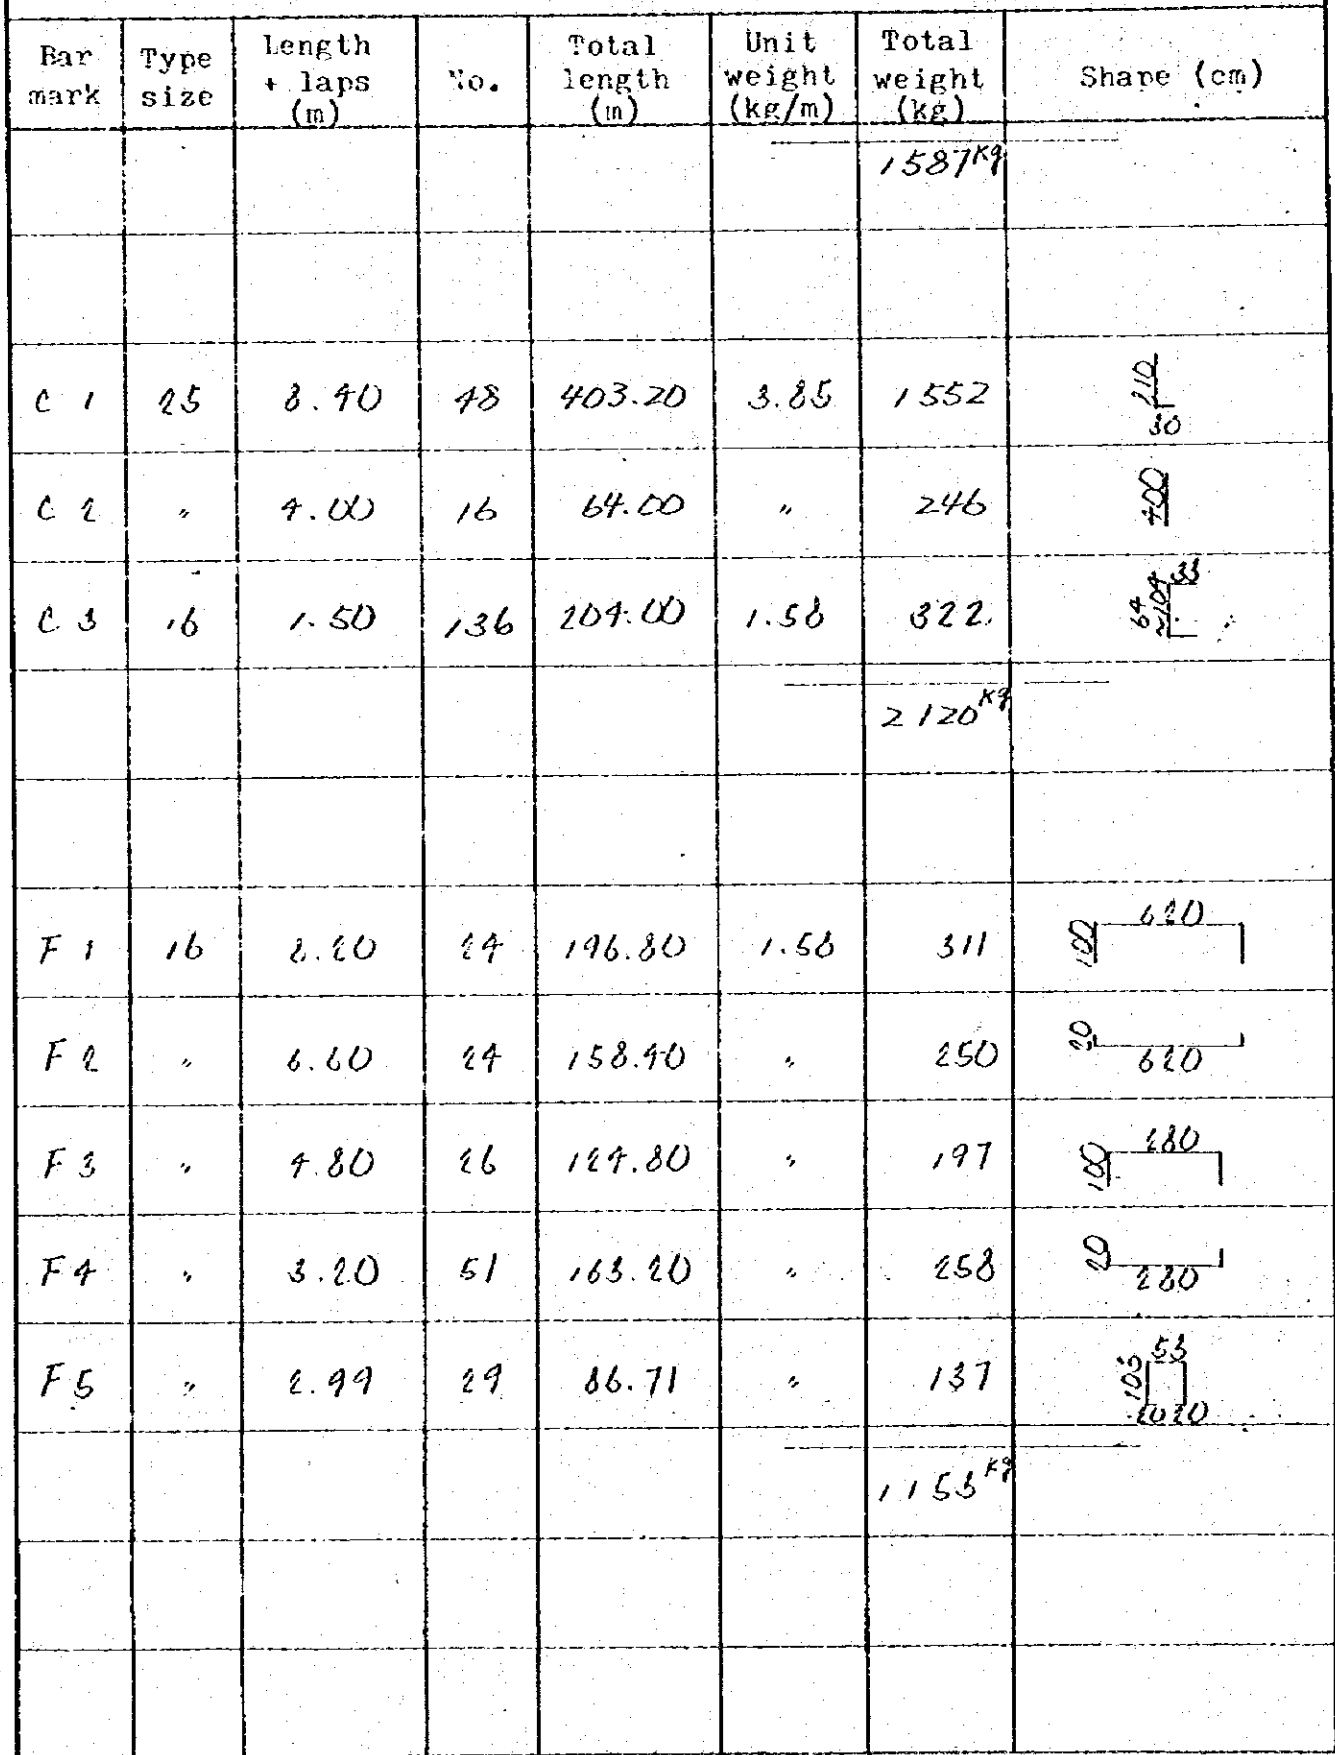 Bar mark Type size Length + laps (m) No. Total length (m) Unit weight (kg/m) Total weight (kg) Shape (cm)
1587 Kg
C 1 25 8.40 48 403.20 3.85 1552 210 30
C 2 〃 4.00 16 64.00 〃 246 400
C 3 16 1.50 136 204.00 1.58 322 64 ~104 33
2120 Kg
F 1 16 8.20 24 196.80 1.58 311 100 620
F 2 〃 6.60 24 158.40 〃 250 20 620
F 3 〃 4.80 26 124.80 〃 197 100 280
F 4 〃 3.20 51 163.20 〃 258 20 280
F 5 〃 2.99 29 86.71 〃 137 103 53 20 20
1153 Kg